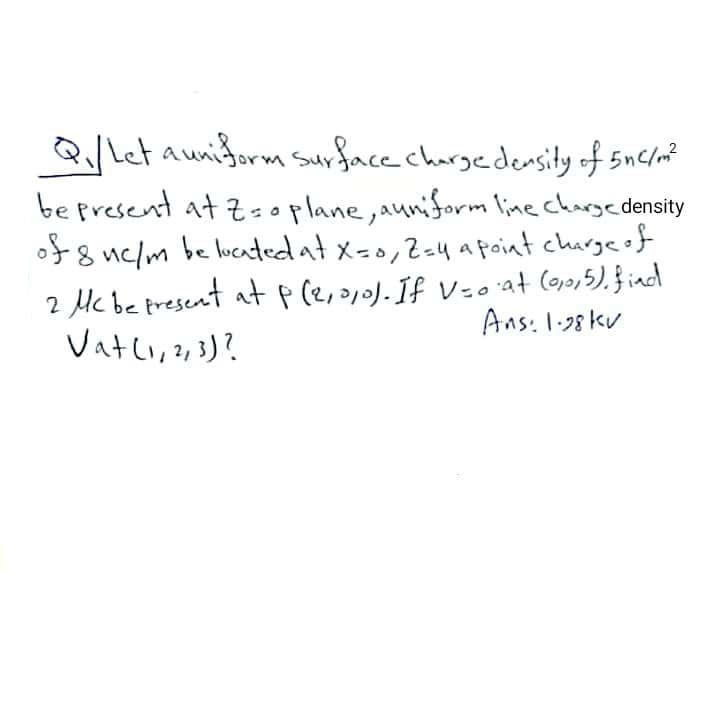 Q1/ Let a uniform surface charge density of 5nC/m²
be present at Z=0 plane, a uniform line charge density
of 8 nc/m be located at X=0, Z=4 a point charge of
2 Mc be present at P (2,0,0). If V=0 at (0,0,5). find
V at (1, 2, 3)?
Ans: 1.98 kv